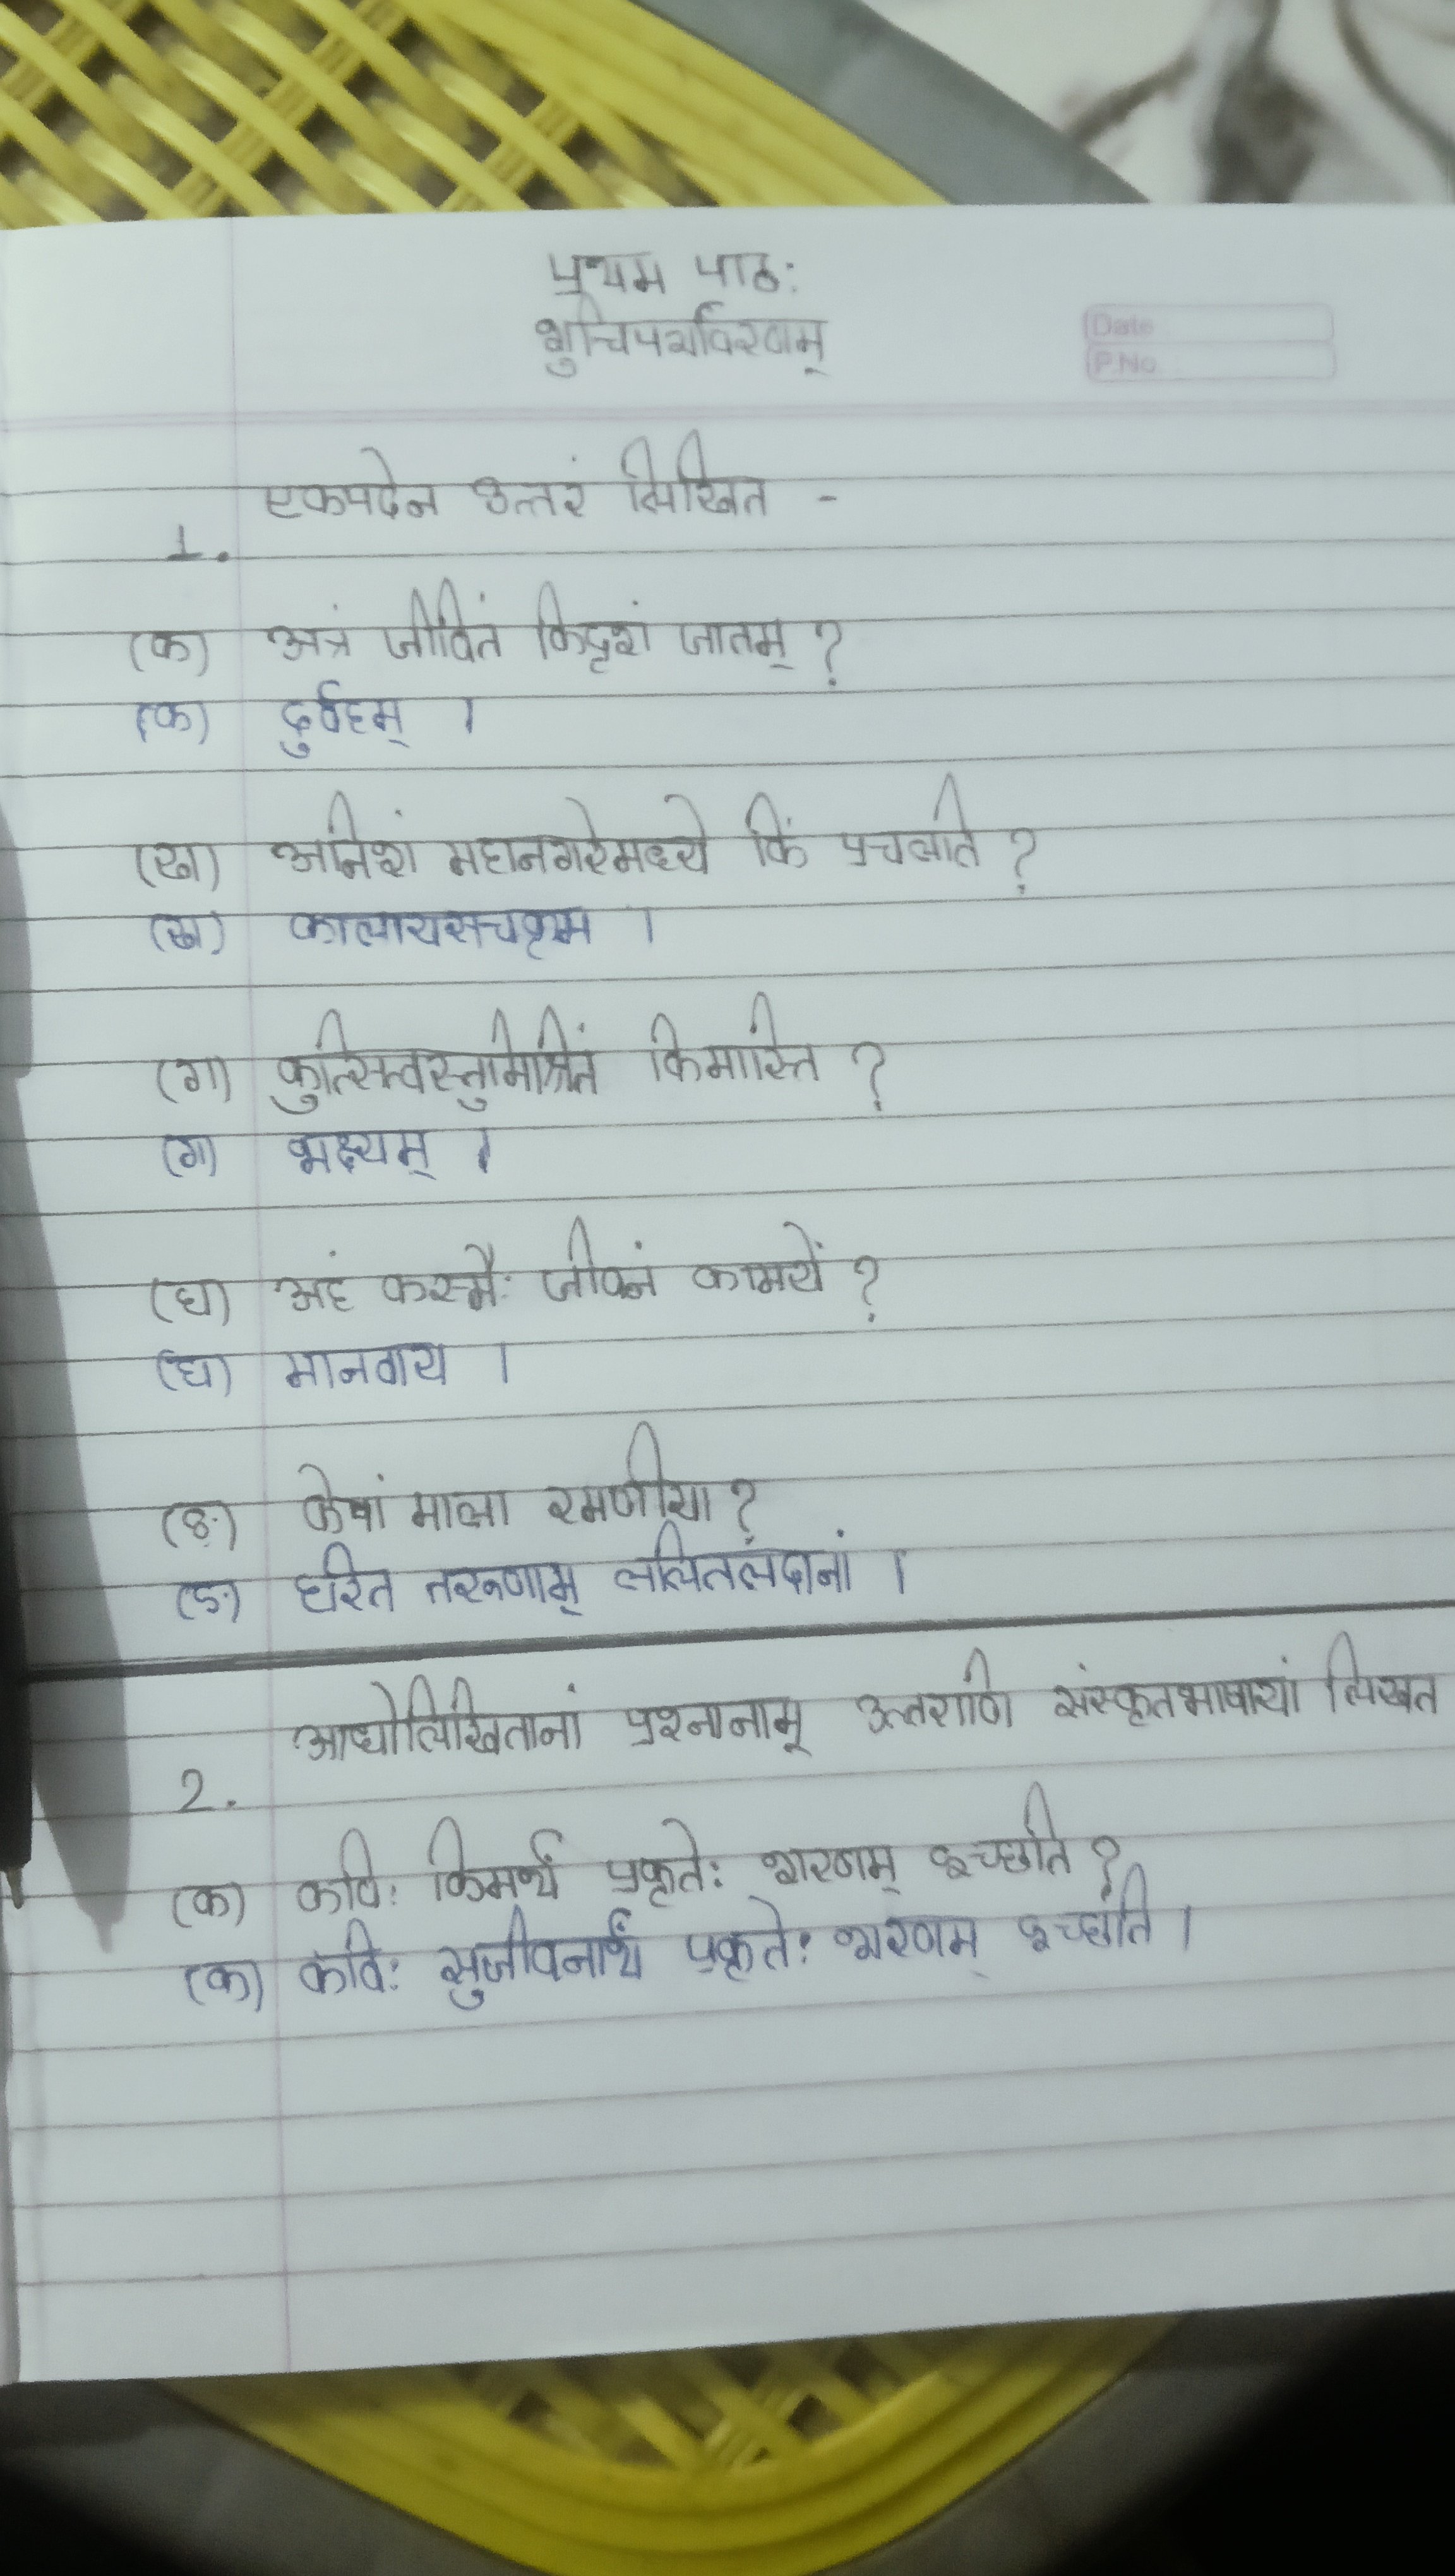 प्रथम पाठ:
शुचिपर्यावरणम्
Date
P.No.
एकपदेन उत्तरं लिखित -
1.
(क) अत्रं जीवितं किदृशं जातम् ?
(क) दुर्वहम् ।
(ख) अनिशं महानगरेमध्ये किं प्रचलति ?
(ख) कालायसचक्रम ।
(ग) कुत्सित्वस्तुमिश्रितं किमास्ति ?
(ग) भक्ष्यम् ।
(घ) अहं कस्मै: जीवनं कामयें ?
(घ) मानवाय ।
(ङ) केषां माला रमणीया ?
(ङ) हरित तरुणाम् ललितलंदानां ।
आधोलिखितानां प्रश्नानाम् उत्तराणि संस्कृतभाषायां लिखत
2.
(क) कवि: किमर्थं प्रकृते: शरणम् इच्छति ?
(क) कवि: सुजीवनार्थं प्रकृते: शरणम् इच्छति ।